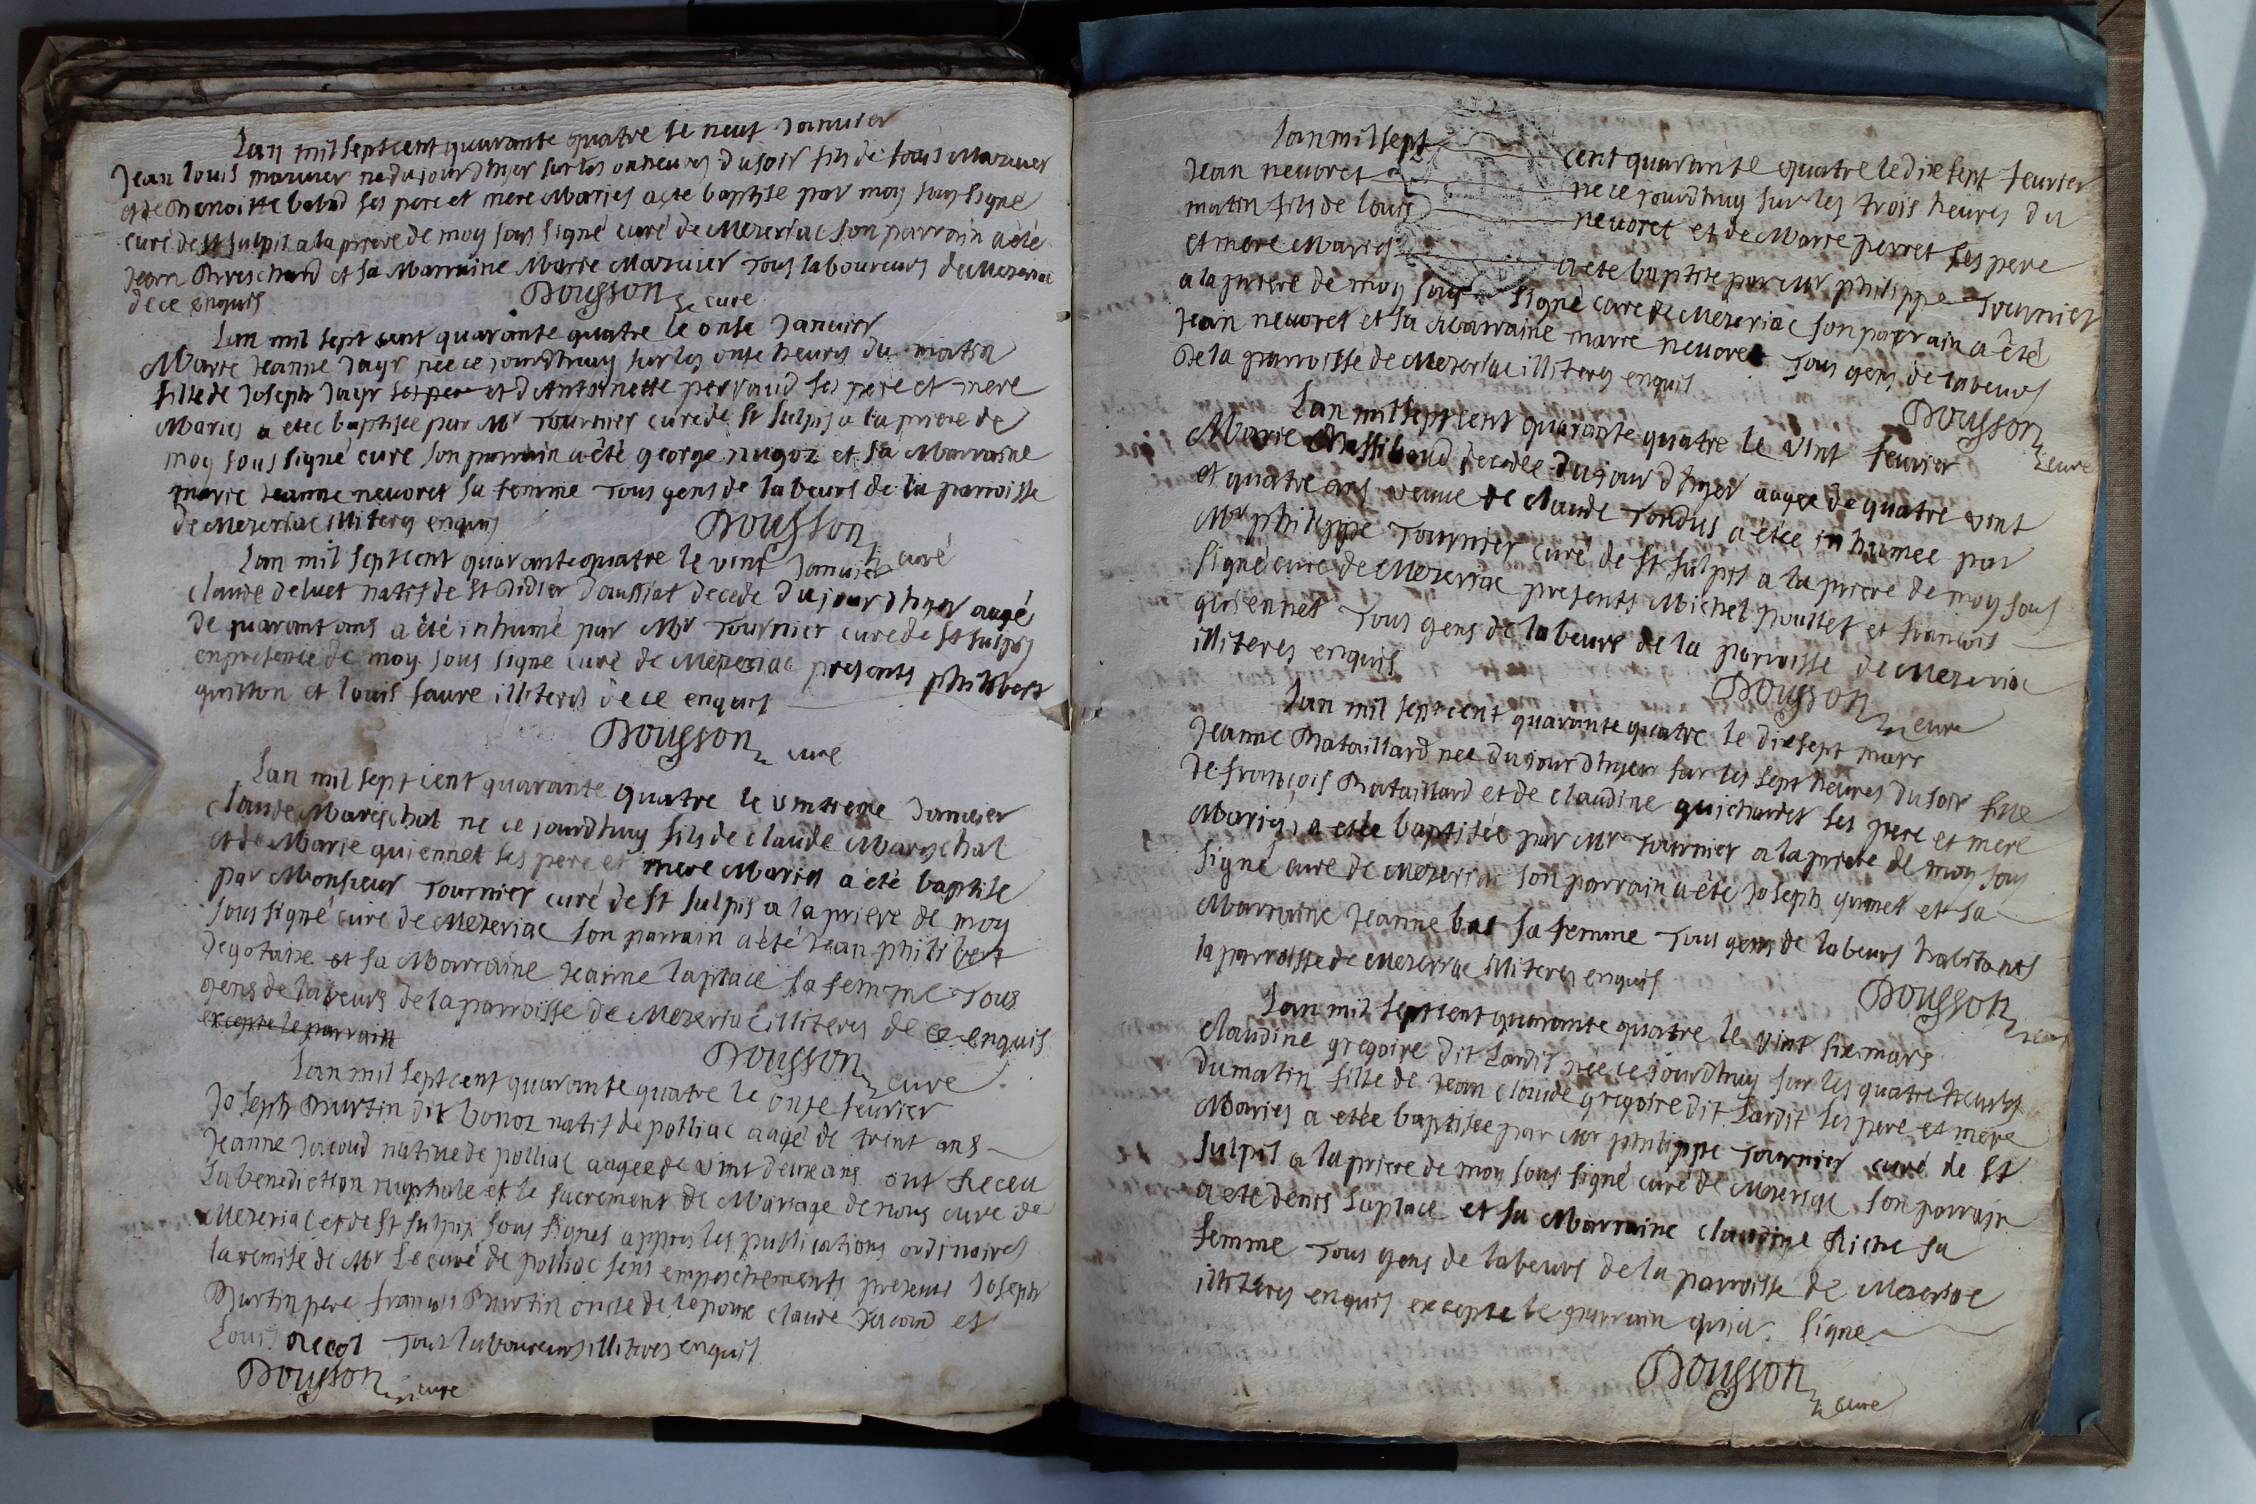 Lan mil sept cent quarante quatre le neuf Janvier
Jean louis maruier ne dujourdhyer sur les onheures dusoir fils de louis Maruier
et de Benoitte bolud ses pere et mere Maries aete baptise par moy sous signé
curé de st sulpis a la priere de moy sous signé curé de Mezeriac son parrain a été
Jean Brreschard et sa Marraine Marie Maruier Tous laboureurs de Mezeriac
de ce enquis Dousson curé
Lan mil sept cent quarante quatre le onse Janvier
Marie Jeanne Jayr née ce jourdhuy sur les onse heures du matin
fille de Joseph Jayr ses pere et d'Antoinette perraud ses pere et mere
Maries a etee baptisée par Mr Tournier curé de st sulpis a la priere de
moy sous signé curé son parrain a été george nugoz et sa Marraine
marie Jeanne nevoret sa femme Tous gens de labeurs de la parroisse
de Mezeriac illiteres enquis Dousson curé
Lan mil sept cent quarante quatre le vint Janvier
claude deluet natif de st Didier daussiat decede dujourdhyer aagé
de quarant ans a été inhumé par Mr Tournier curé de st sulpis
en presence de moy sous signé curé de Mezeriac presents philibert
guitton et louis faure illiteres de ce enquis
Dousson curé
Lan mil sept cent quarante quatre le vintreme Janvier
Claude Mareschal ne ce jourdhuy fils de claude Mareschal
et de Marie quiennet ses pere et mere Maries a été baptise
par Monsieur Tournier curé de st sulpis a la priere de moy
sous signé curé de Mezeriac son parrain a été Jean philibert
Degotaire et sa Marraine Jeanne laplace sa femme Tous
gens de labeurs de la parroisse de Mezeriac illiteres de ce enquis
excepte le parrain Dousson curé
Lan mil sept cent quarante quatre le onse fevrier
Joseph Burtin dit bonoz natif de polliac aagé de trent ans
Jeanne Jacoud native de polliac aagee de vint deux ans ont Receu
la benediction nuptiale et le sacrement de Mariage de nous curé de
Mezeriac et de st sulpis sous signes appres les publications ordinaires
la remise de Mr le curé de polliac sens empeschements presents Joseph
Burtin pere françois Burtin oncle de lepoux claude Jacoud et
Louis Tous laboureurs illiteres enquis
Dousson curé
Lan mil sept cent quarante quatre le dixsept fevrier
Jean nevoret ne ce jourdhuy sur les trois heures du
matin fils de louis nevoret et de Marie perret ses pere
et mere Maries a ete baptise par Mr philippe Tournier
a la priere de moy sous signé curé de Mezeriac son parrain a été
Jean nevoret et sa Marraine marie nevoret Tous gens de labeurs
de la parroisse de Mezeriac illiteres enquis
Dousson curé
Lan mil sept cent quarante quatre le vint fevrier
Marie Massibaud decedée dujourdhyer aagee de quatre vint
et quatre ans veuve de claude Tondus a étée inhumee par
Mr philippe Tournier curé de st sulpis a la priere de moy sous
signé curé de Mezeriac presents Michel poullet et francois
quiennet Tous gens de labeurs de la parroisse de Mezeria
illiteres enquis
Dousson curé
Lan mil sept cent quarante quatre le dixsept mars
Jeanne Bataillard née dujourdhyer sur les sept heures dusoir fille
de françois Bataillard et de claudine guichardet ses pere et mere
Maries, a etée baptisée par Mr Tournier a la priere de moy sous
signé curé de Mezeriac son parrain a été Joseph qumet et sa
Marraine Jeanne bas sa femme Tous gens de labeurs habitants
la parroisse de Mezeriac illiteres enquis
Dousson curé
Lan mil sept cent quarante quatre le vint six mars
Claudine gregoire dit Lardit née ce jourdhuy sur les quatre heures
du matin fille de Jean Claude gregoire dit Lardit ses pere et mere
Maries a etée baptisée par Mr philippe Tournier curé de st
sulpis a la priere de moy sous signé curé de Mezeriac son parrain
a été denis Laplace et sa Marraine claudine Riche sa
femme Tous gens de labeurs de la parroisse de Mezeriac
illiteres enquis excepte le parrain qui a signé
Dousson curé